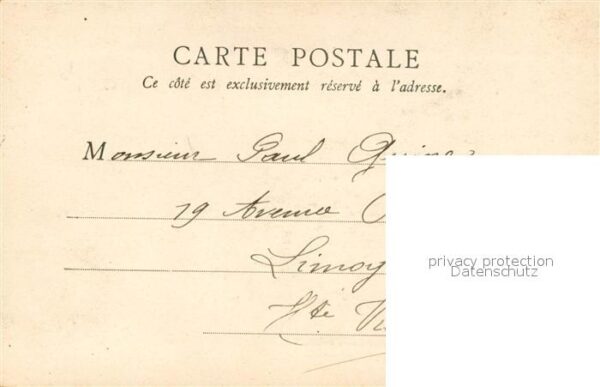 CARTE POSTALE
Ce côté est exclusivement réservé à l'adresse.
Monsieur Paul
19 Avenue
Limog
Hte V
privacy protection
Datenschutz